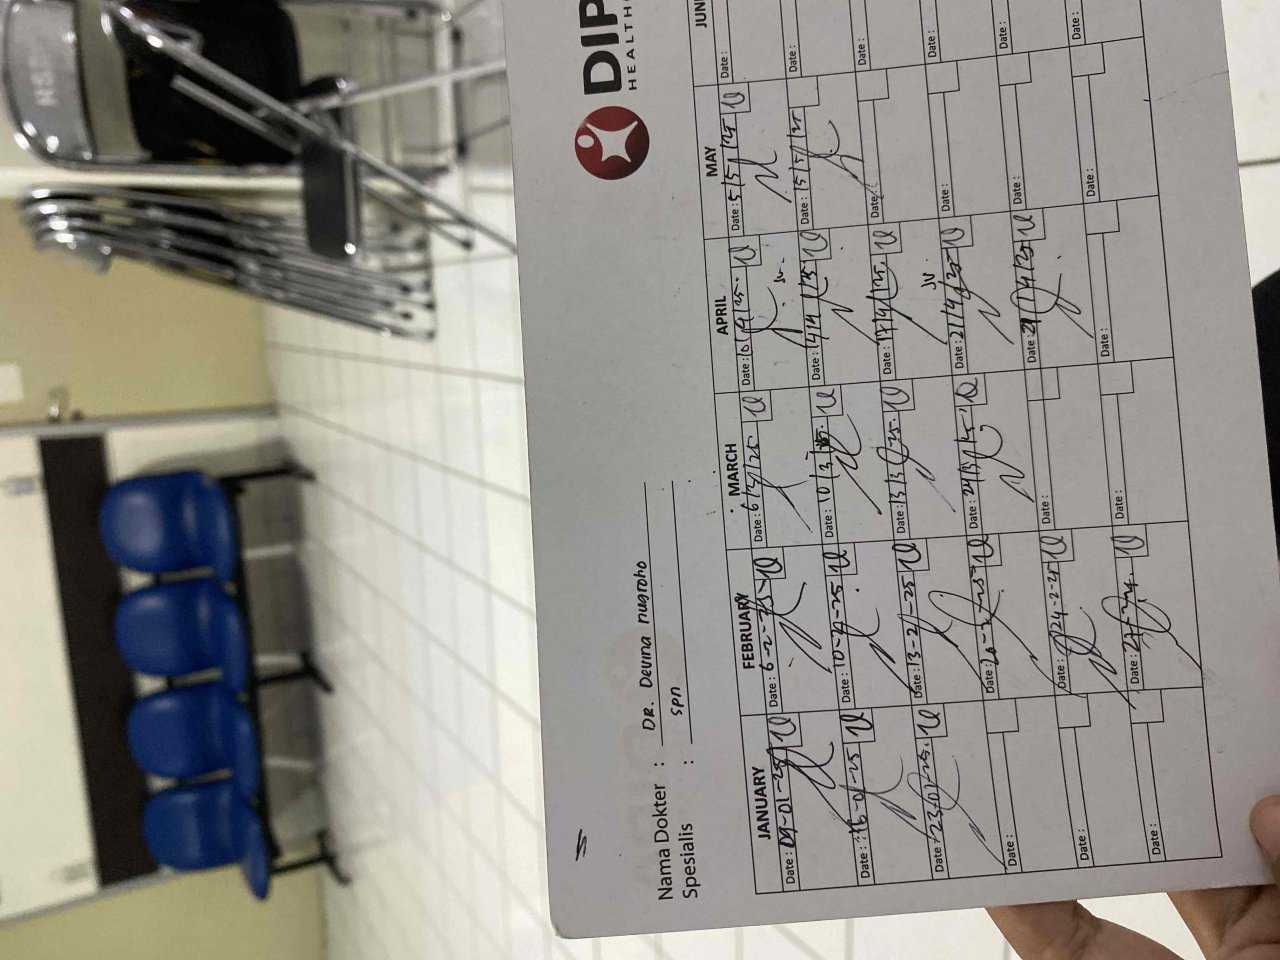 DIP
HEALTH
Nama Dokter : DR. Devina nugroho
Spesialis : spn
JANUARY FEBRUARY MARCH APRIL MAY JUN
Date: 09-01-25 Date: 6-2-25 Date: 6/3/25 Date: 10/4/25. Date: 5/5/25 Date:
Date: 16-01-25 Date: 10-2-25 Date: 10/3/25. Date: 14/4/25 Date: 15/5/25. Date:
Date: 23-01-25. Date: 13-2-25 Date: 13/3/25. Date: 17/4/25. Date: Date:
Date: Date: 20-2-25 Date: 24/3/25 Date: 21/4/25 Date: Date:
Date: Date: 24-2-25 Date: Date: 29/4/25 Date: Date:
Date: Date: 27-2-25. Date: Date: Date: Date: